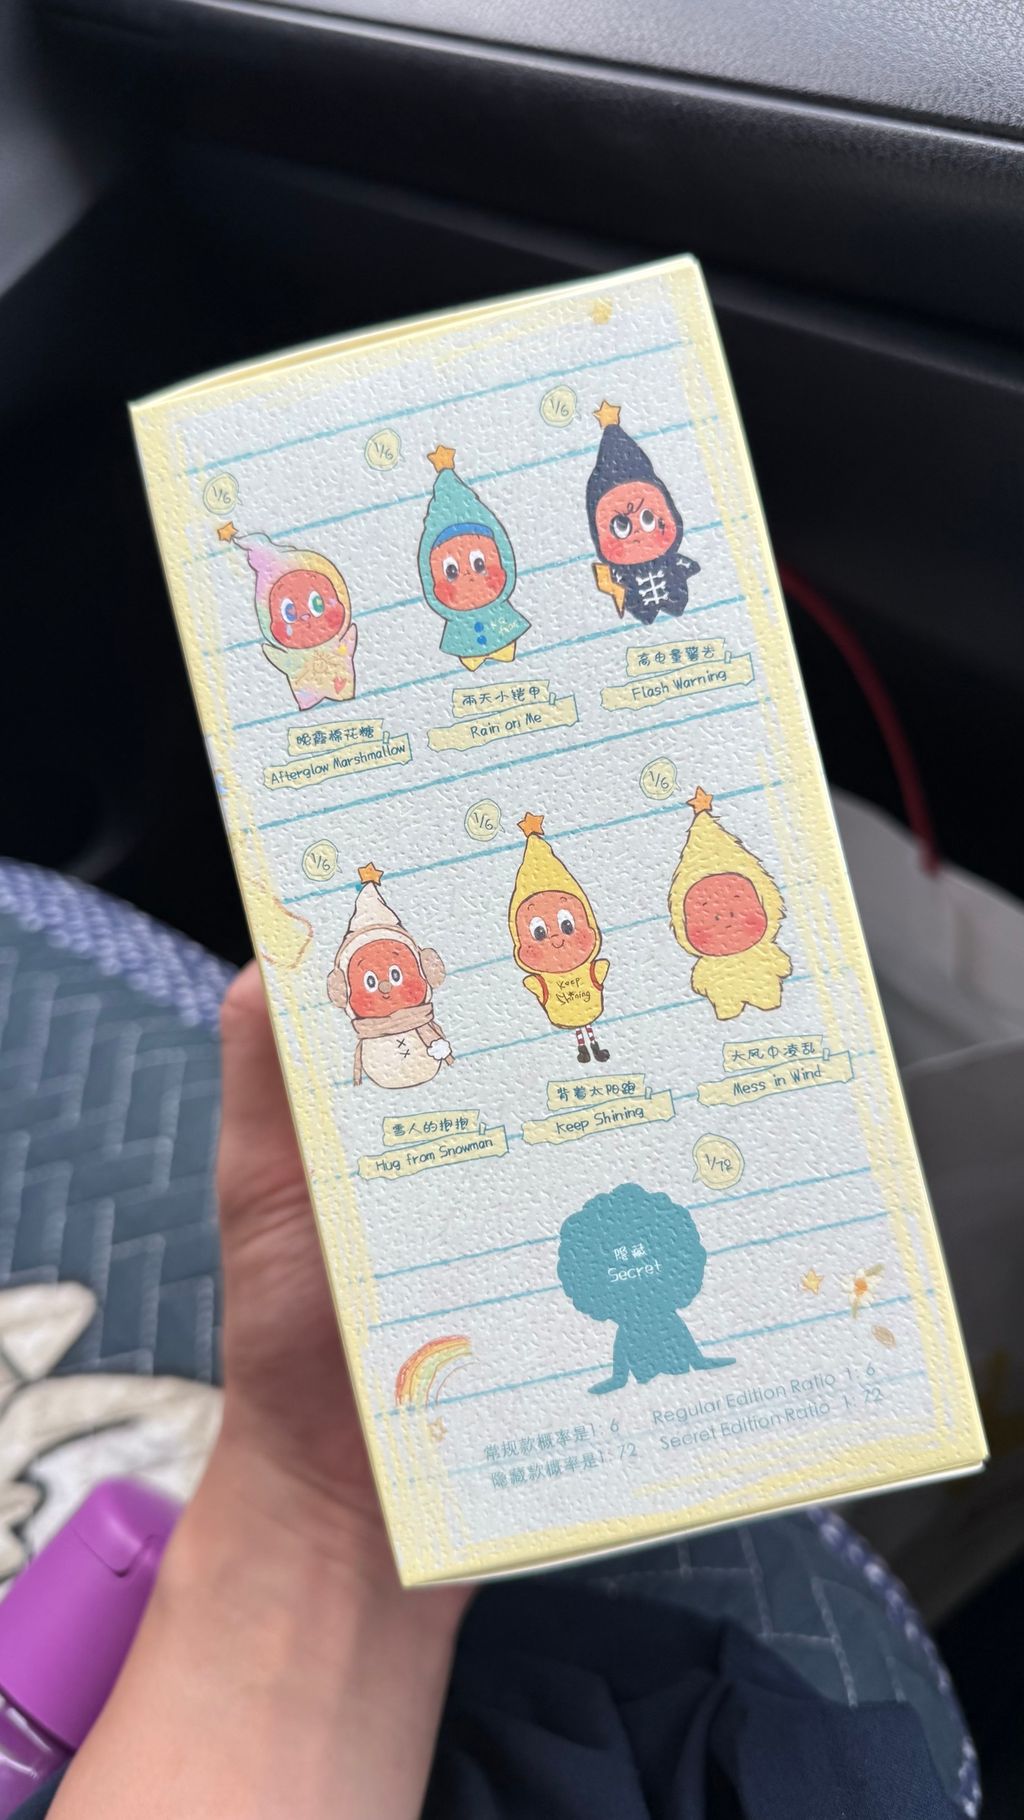 1/6
1/6
1/6
晚霞棉花糖
Afterglow Marshmallow
雨天小铠甲
Rain on Me
高电量警告
Flash Warning
1/6
1/6
1/6
Keep
Shining
雪人的抱抱
Hug from Snowman
背着太阳跑
Keep Shining
大风中凌乱
Mess in Wind
1/72
隐藏
Secret
常规款概率是1: 6 Regular Edition Ratio 1: 6
隐藏款概率是1: 72 Secret Edition Ratio 1: 72